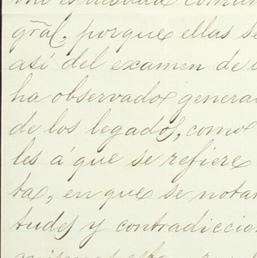 grãl. porque ellas se
así del examen de
ha observados genera
de los legados, como
les á que se refiere
ta, en que se notan
tudes y contradiccio